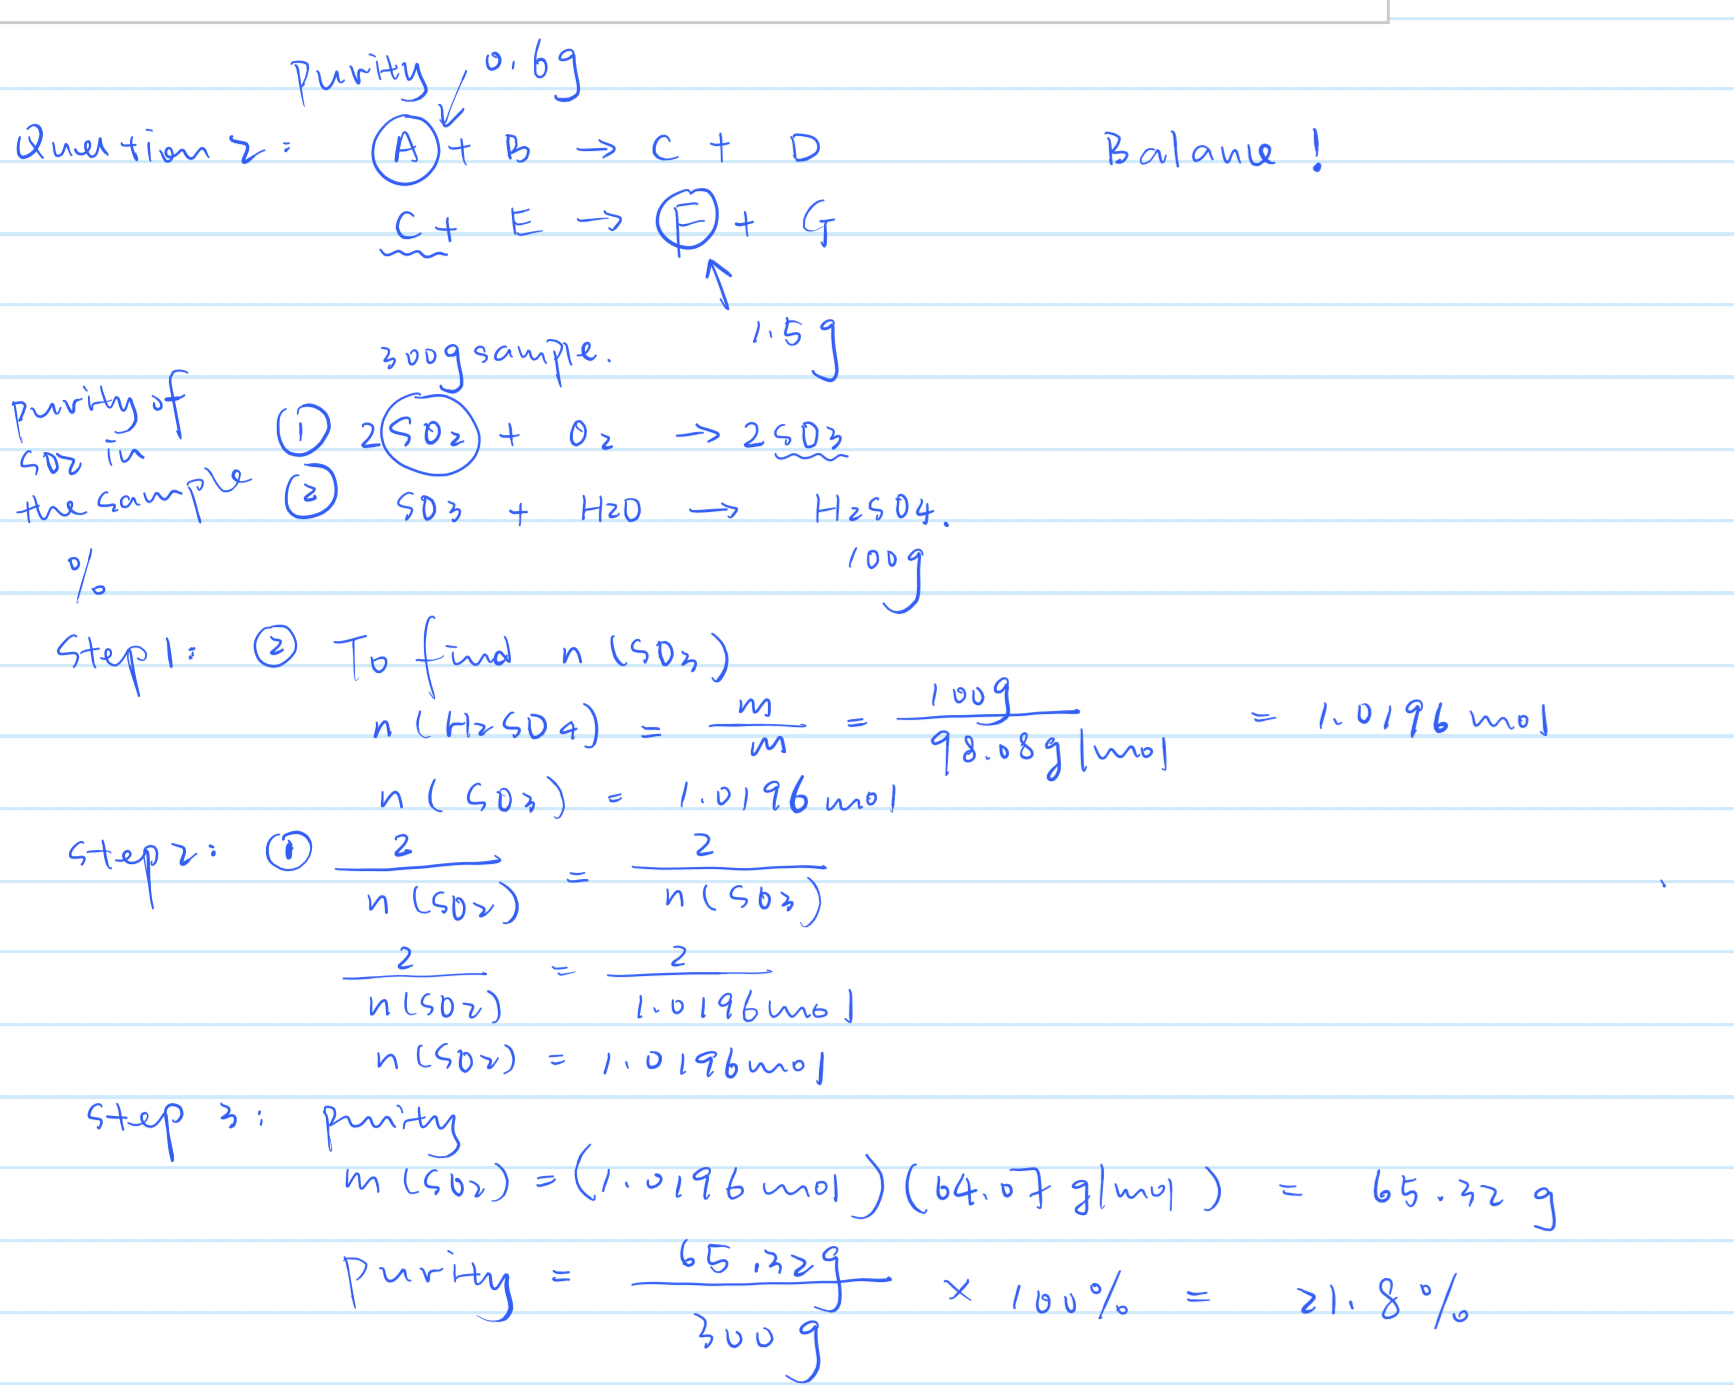 purity 0.6g
Question 2: A + B → C + D Balance!
C + E → F + G
1.5g
300g sample.
purity of SO2 in the sample %
① 2SO2 + O2 → 2SO3
② SO3 + H2O → H2SO4.
100g
Step 1: ② To find n(SO3)
n(H2SO4) = m/m = 100g/98.08g/mol = 1.0196 mol
n(SO3) = 1.0196 mol
Step 2: ① 2/n(SO2) = 2/n(SO3)
2/n(SO2) = 2/1.0196 mol
n(SO2) = 1.0196 mol
Step 3: purity
m(SO2) = (1.0196 mol)(64.07 g/mol) = 65.32 g
purity = 65.32g/300g × 100% = 21.8%